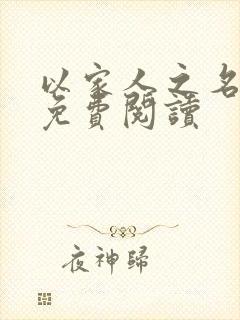 以家人之名
免費閱讀
夜神歸